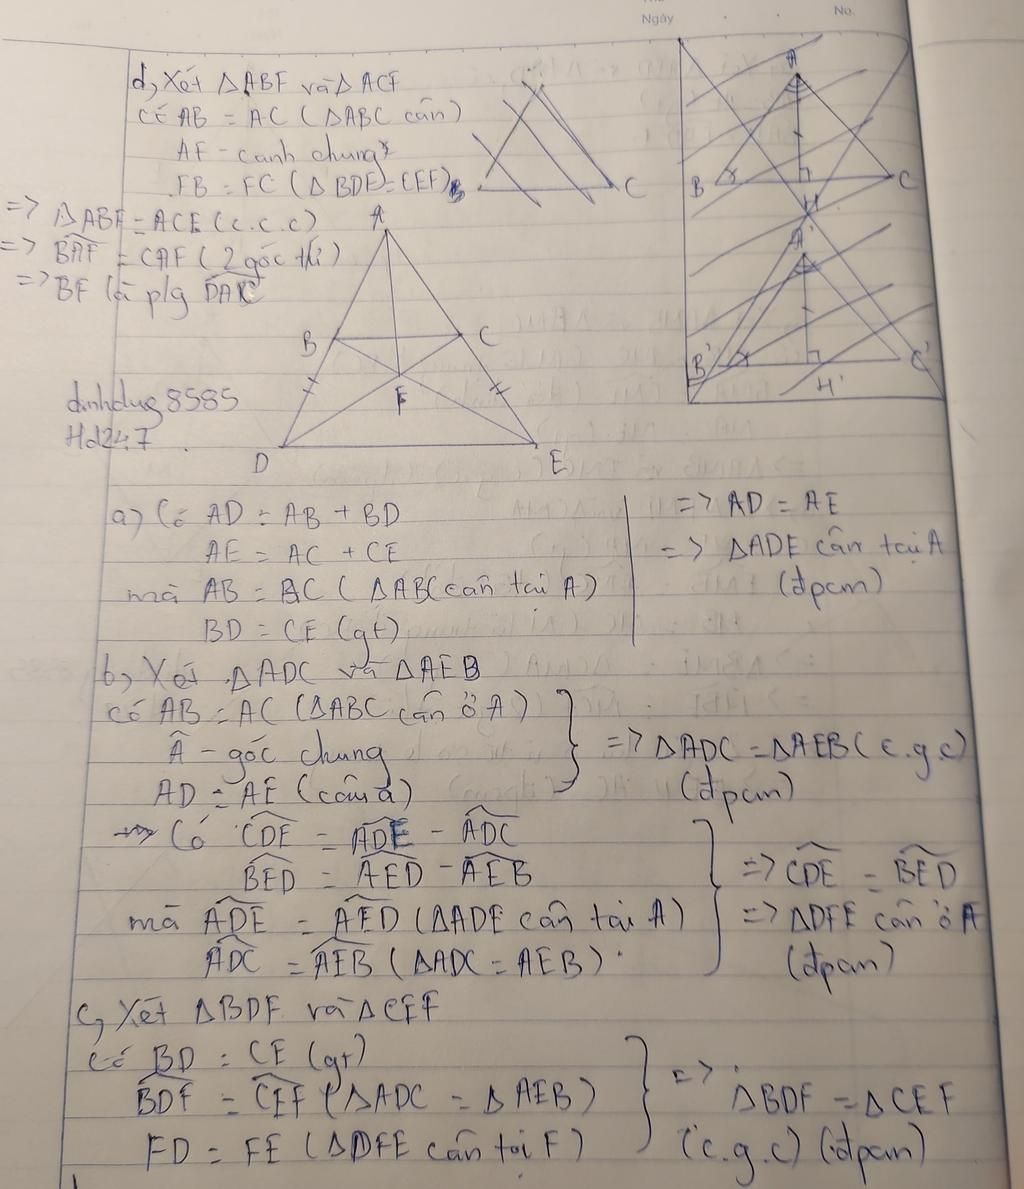 Ngày
No.
d, Xét ΔABF và ΔACF
có AB = AC (ΔABC cân)
AF - cạnh chung
FB = FC (ΔBDF = CEF)
=> ΔABF = ACF (c.c.c)
=> BAF = CAF (2 góc tứ)
=> BF là p/g DAC
B C
A
B C
H
A'
B' C'
H'
A
B C
F
D E
dinhdug8585
Hd247
a, Có AD = AB + BD
AE = AC + CE
mà AB = AC (ΔABC cân tại A)
BD = CE (gt)
=> AD = AE
=> ΔADE cân tại A
(đpcm)
b, Xét ΔADC và ΔAEB
có AB = AC (ΔABC cân ở A)
Â - góc chung
AD = AE (câu a)
=> ΔADC = ΔAEB (c.g.c)
(đpcm)
Có CDE = ADE - ADC
BED = AED - AEB
mà ADE = AED (ΔADE cân tại A)
ADC = AEB (ΔADC = AEB)
=> CDE = BED
=> ΔDFE cân ở F
(đpcm)
c, Xét ΔBDF và ΔCEF
có BD = CE (gt)
BDF = CEF (ΔADC = ΔAEB)
FD = FE (ΔDFE cân tại F)
=> ΔBDF = ΔCEF
(c.g.c) (đpcm)